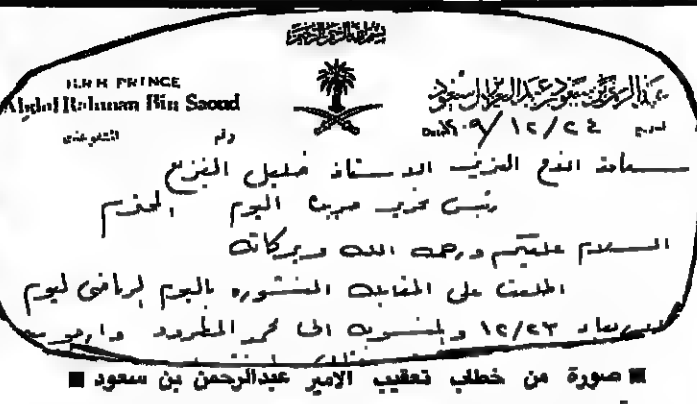 بسم الله الرحمن الرحيم
H.R.H PRINCE
Abdul Rahman Bin Saoud
عبدالرحمن بن سعود بن عبدالعزيز آل سعود
رقم
١٤٠٩/١٢/٢٤
سعادة الأخ العزيز الاستاذ خليل الفزيع
رئيس تحرير جريدة اليوم المحترم
السلام عليكم ورحمة الله وبركاته
اطلعت على المقابلة المنشورة باليوم الرياضي ليوم
١٢/٢٣ والمنسوبة الى محرر المطرود وارجو
■ صورة من خطاب تعقيب الامير عبدالرحمن بن سعود ■